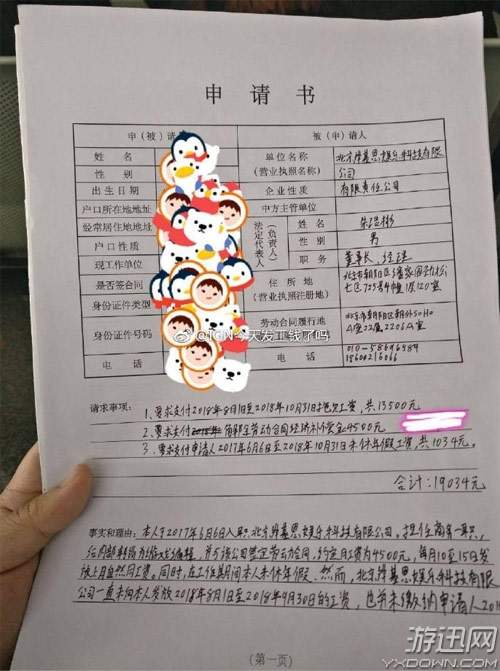 申请书
申(被)请
被(申)请人
姓名
单位名称
(营业执照名称)
北京 娱乐科技有限公司
性别
出生日期
企业性质
有限责任公司
户口所在地地址
中方主管单位
经常居住地地址
法定代表人
(负责人)
姓名
朱 彬
户口性质
性别
男
现工作单位
职务
董事长、经理
是否签合同
住所地
(营业执照注册地)
北京市朝阳区
七区725号 1层120室
身份证件类型
身份证件号码
劳动合同履行地
北京市朝阳区朝外SOHO
A座22层2206A室
电话
电话
010-58696984
18600216066
@IGN今天发工钱了吗
请求事项:
1、要求支付2018年8月1日至2018年10月31日拖欠工资,共13500元
2、要求支付 解除劳动合同经济补偿金4500元
3、要求支付申请人2017年6月6日至2018年10月31日未休年假工资,共1034元。
合计:19034元
事实和理由:本人于2017年6月6日入职北京 娱乐科技有限公司,担任商务一职,
后内部转岗为游戏编辑,并与该公司签定劳动合同,约定月工资为4500元,每月10至15日发
放上月自然月工资。同时,在工作期间本人未休年假。然而,北京 娱乐科技有限
公司一直未向本人发放2018年8月1日至2018年9月30日的工资,也并未缴纳申请人201
(第一页)
游迅网
YXDOWN.COM